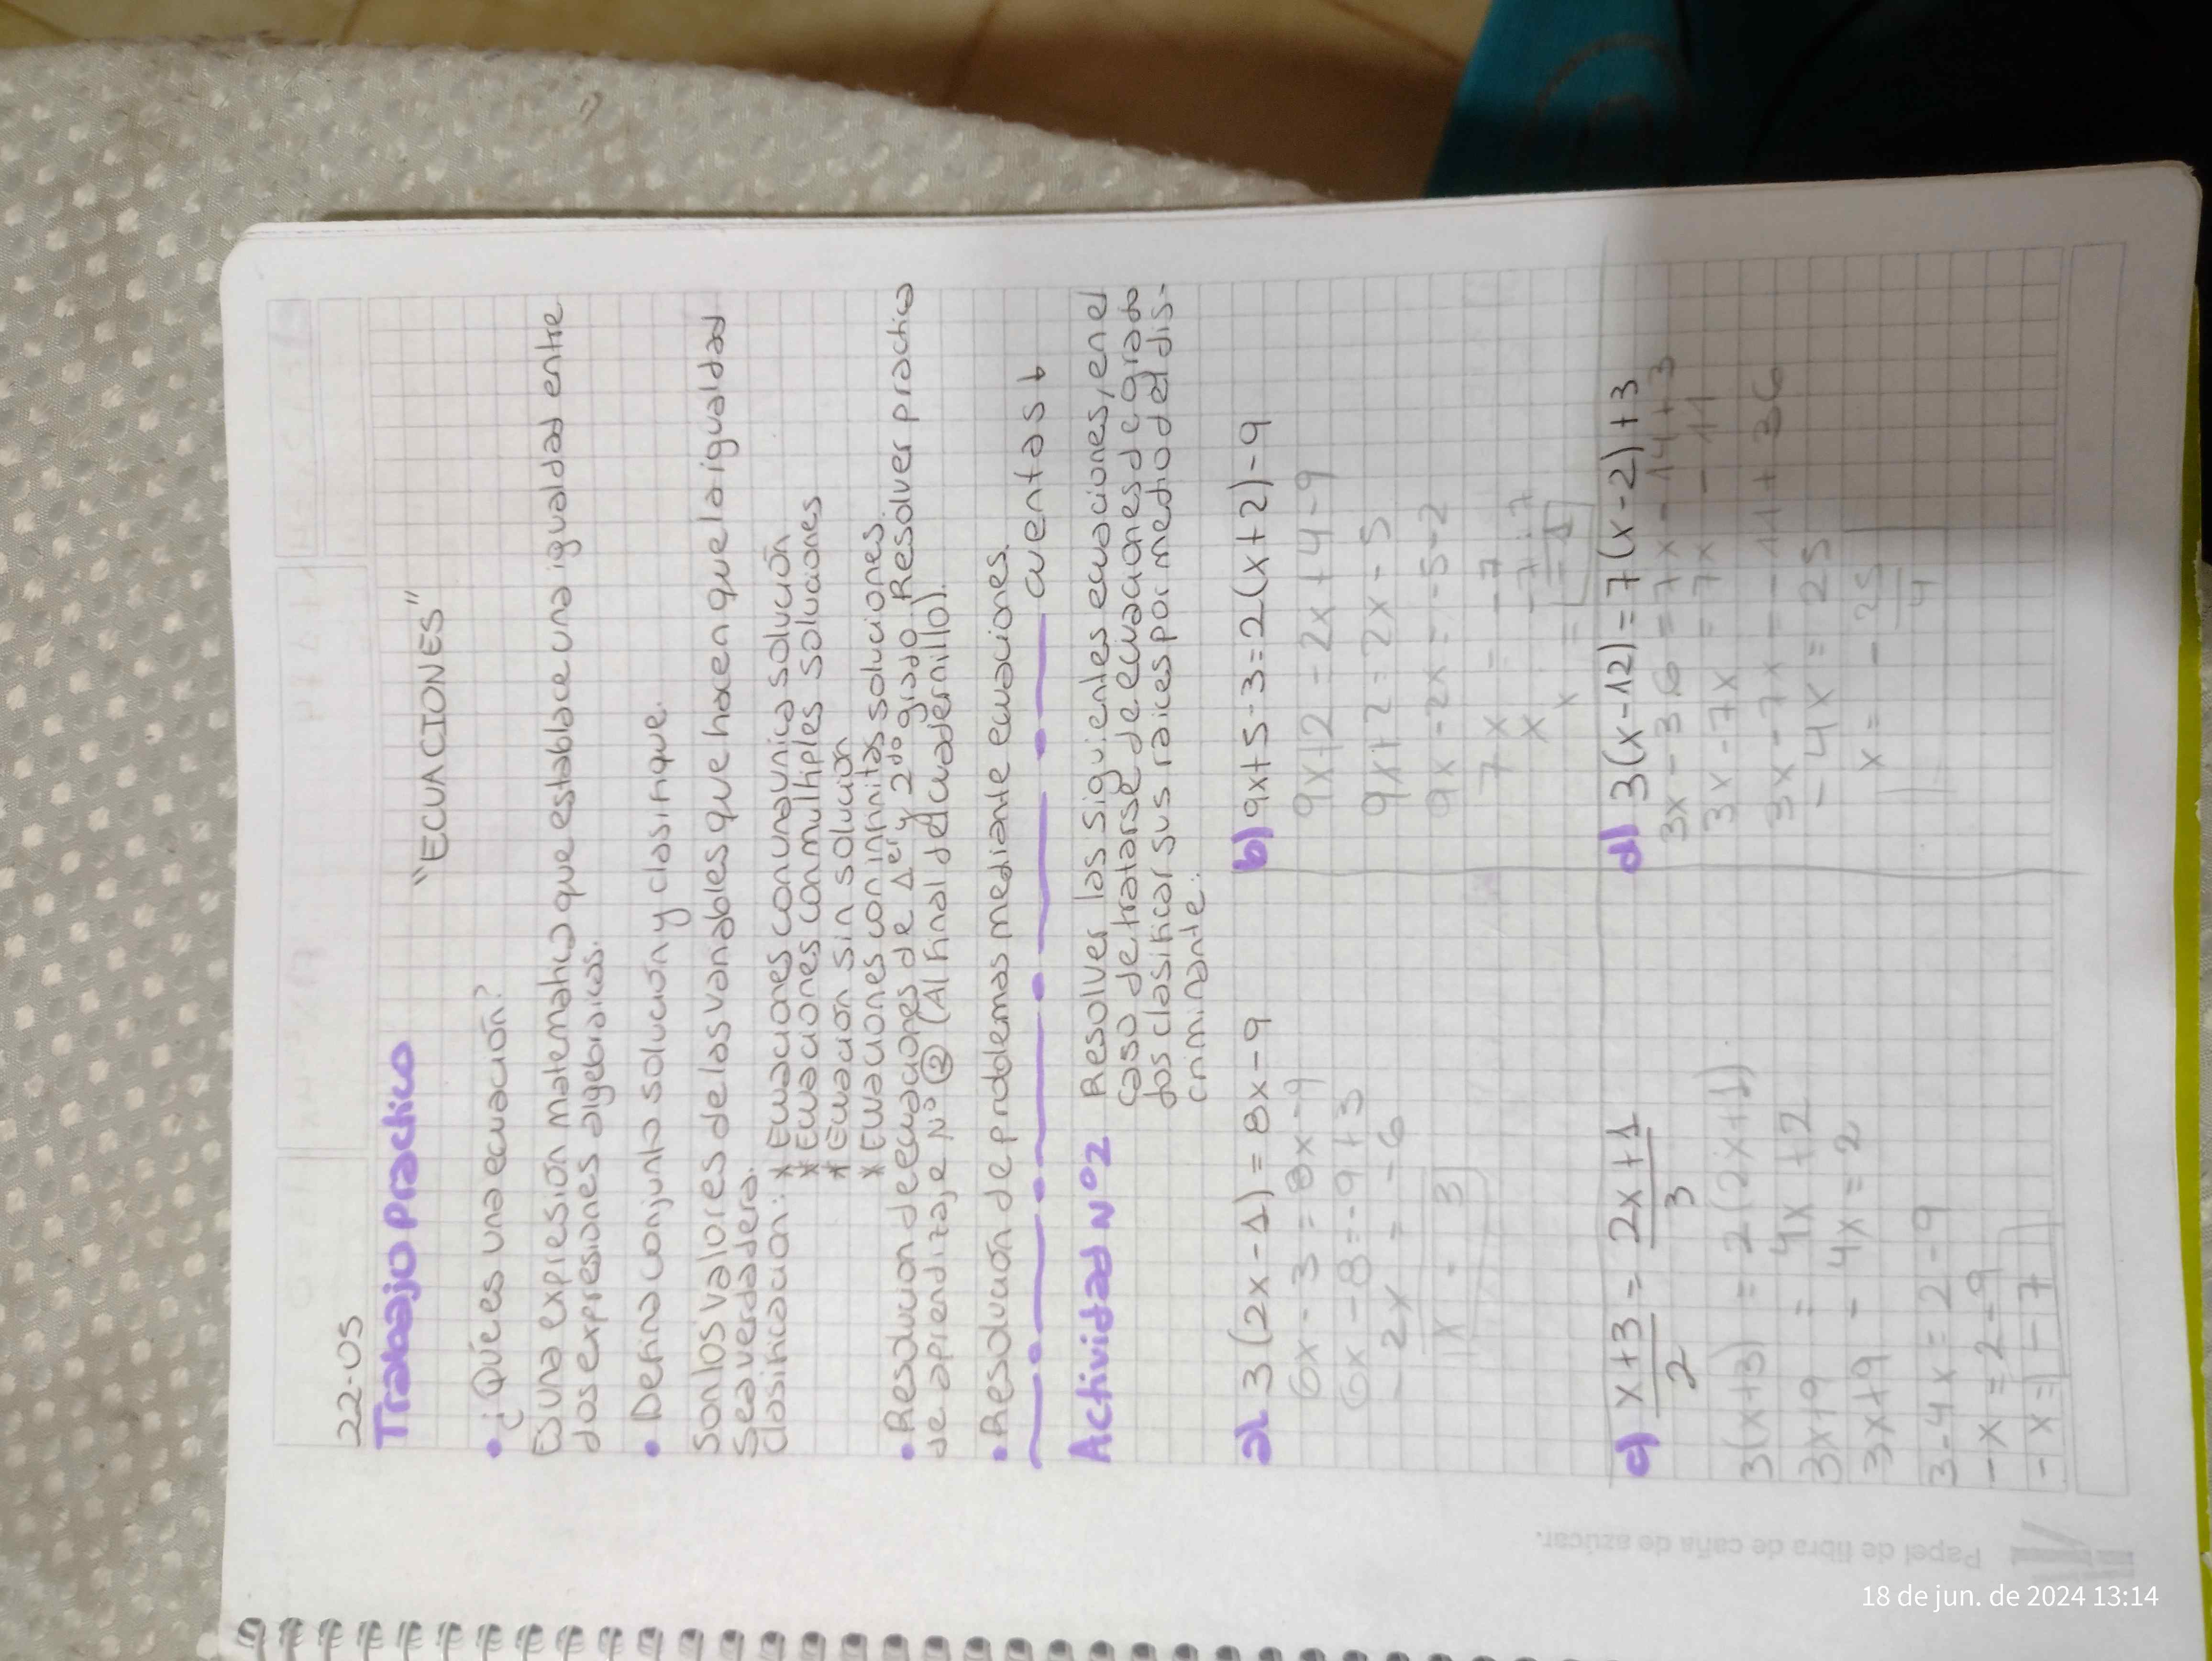 22-05
Trabajo practico
"ECUACIONES"
• ¿Qué es una ecuación?
Es una expresión matematica que establece una igualdad entre
dos expresiones algebraicas.
• Defina conjunto solución y clasifique.
Son los valores de las variables que hacen que la igualdad
sea verdadera.
Clasificación: * Ecuaciones con una unica solución
* Ecuaciones con multiples soluciones
* Ecuación sin solución
* Ecuaciones con infinitas soluciones.
• Resolucion de ecuaciones de 1er y 2do grado Resolver practico
de aprendizaje N° ② (Al final del cuadernillo).
• Resolución de problemas mediante ecuaciones.
cuentas
Actividad N°2 Resolver las siguientes ecuaciones, en el
caso de tratarse de ecuaciones de grado
dos clasificar sus raices por medio del dis-
criminante.
a) 3(2x-1) = 8x-9
6x - 3 = 8x-9
6x - 8 = -9 + 3
-2x = -6
x = 3
b) 9x+5-3=2(x+2)-9
9x+2 = 2x+4-9
9x+2=2x-5
9x-2x=-5-2
7x = -7
x = -7:7
x = -1
c) x+3/2 = 2x+1/3
3(x+3) = 2(2x+1)
3x+9 = 4x+2
3x+9 - 4x = 2
3-4x=2-9
-x=2-9
-x=-7
d) 3(x-12)=7(x-2)+3
3x-36=7x-14+3
3x-7x =7x -11
3x-7x=-11+36
-4x=25
x= - 25/4
Papel de fibra de caña de azúcar.
18 de jun. de 2024 13:14